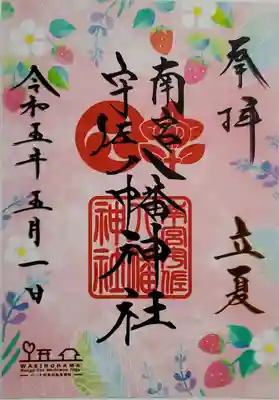 奉拝
立夏
南宮
宇佐八幡神社
令和五年五月一日
南宮宇佐
八幡
神社
WAKINOHAMA